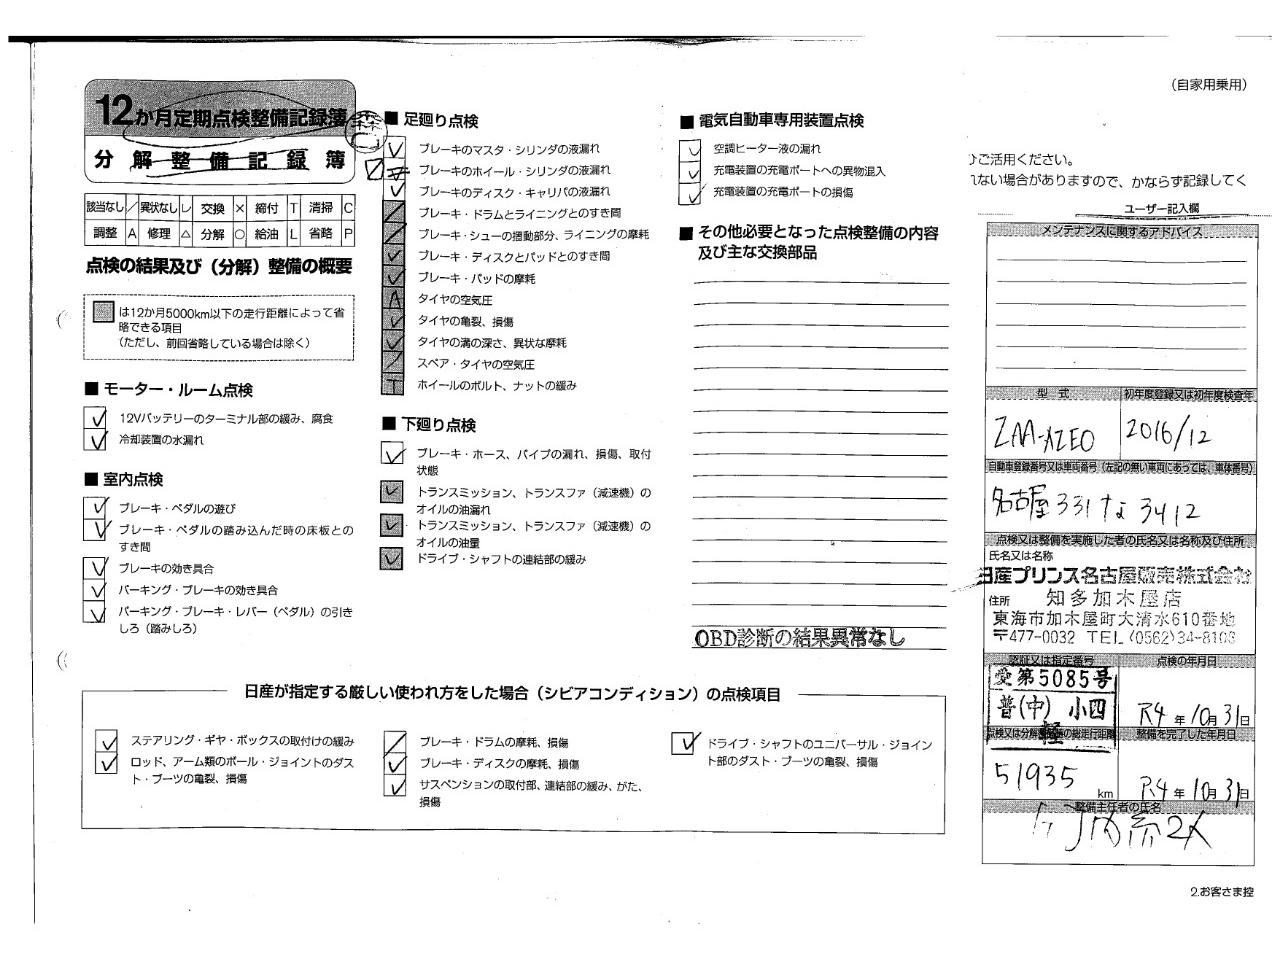 （自家用乗用）
12か月定期点検整備記録簿
分解整備記録簿
該当なし ／ 異状なし レ 交換 × 締付 T 清掃 C
調整 A 修理 △ 分解 ○ 給油 L 省略 P
点検の結果及び（分解）整備の概要
は12か月5000km以下の走行距離によって省
略できる項目
（ただし、前回省略している場合は除く）
■ モーター・ルーム点検
12Vバッテリーのターミナル部の緩み、腐食
冷却装置の水漏れ
■ 室内点検
ブレーキ・ペダルの遊び
ブレーキ・ペダルの踏み込んだ時の床板との
すき間
ブレーキの効き具合
パーキング・ブレーキの効き具合
パーキング・ブレーキ・レバー（ペダル）の引き
しろ（踏みしろ）
■ 足廻り点検
ブレーキのマスタ・シリンダの液漏れ
ブレーキのホイール・シリンダの液漏れ
ブレーキのディスク・キャリパの液漏れ
ブレーキ・ドラムとライニングとのすき間
ブレーキ・シューの摺動部分、ライニングの摩耗
ブレーキ・ディスクとパッドとのすき間
ブレーキ・パッドの摩耗
A タイヤの空気圧
タイヤの亀裂、損傷
タイヤの溝の深さ、異状な摩耗
スペア・タイヤの空気圧
T ホイールのボルト、ナットの緩み
■ 下廻り点検
ブレーキ・ホース、パイプの漏れ、損傷、取付
状態
トランスミッション、トランスファ（減速機）の
オイルの油漏れ
トランスミッション、トランスファ（減速機）の
オイルの油量
ドライブ・シャフトの連結部の緩み
■ 電気自動車専用装置点検
空調ヒーター液の漏れ
充電装置の充電ポートへの異物混入
充電装置の充電ポートの損傷
■ その他必要となった点検整備の内容
及び主な交換部品
OBD診断の結果異常なし
日産が指定する厳しい使われ方をした場合（シビアコンディション）の点検項目
ステアリング・ギヤ・ボックスの取付けの緩み
ロッド、アーム類のボール・ジョイントのダス
ト・ブーツの亀裂、損傷
ブレーキ・ドラムの摩耗、損傷
ブレーキ・ディスクの摩耗、損傷
サスペンションの取付部、連結部の緩み、がた、
損傷
ドライブ・シャフトのユニバーサル・ジョイン
ト部のダスト・ブーツの亀裂、損傷
ご活用ください。
れない場合がありますので、かならず記録してく
ユーザー記入欄
メンテナンスに関するアドバイス
型 式 初年度登録又は初年度検査年
ZAA-AZE0 2016/12
自動車登録番号又は車両番号（左記の無い車両にあっては、車体番号）
名古屋 331 な 3412
点検又は整備を実施した者の氏名又は名称及び住所
氏名又は名称
日産プリンス名古屋販売株式会社
住所 知多加木屋店
東海市加木屋町大清水610番地
〒477-0032 TEL (0562)34-8103
認証又は指定番号 点検の年月日
愛第5085号
普(中) 小四
軽
R4 年 10月 31日
整備を完了した年月日
51935 km
R4 年 10月 31日
整備主任者の氏名
2.お客さま控